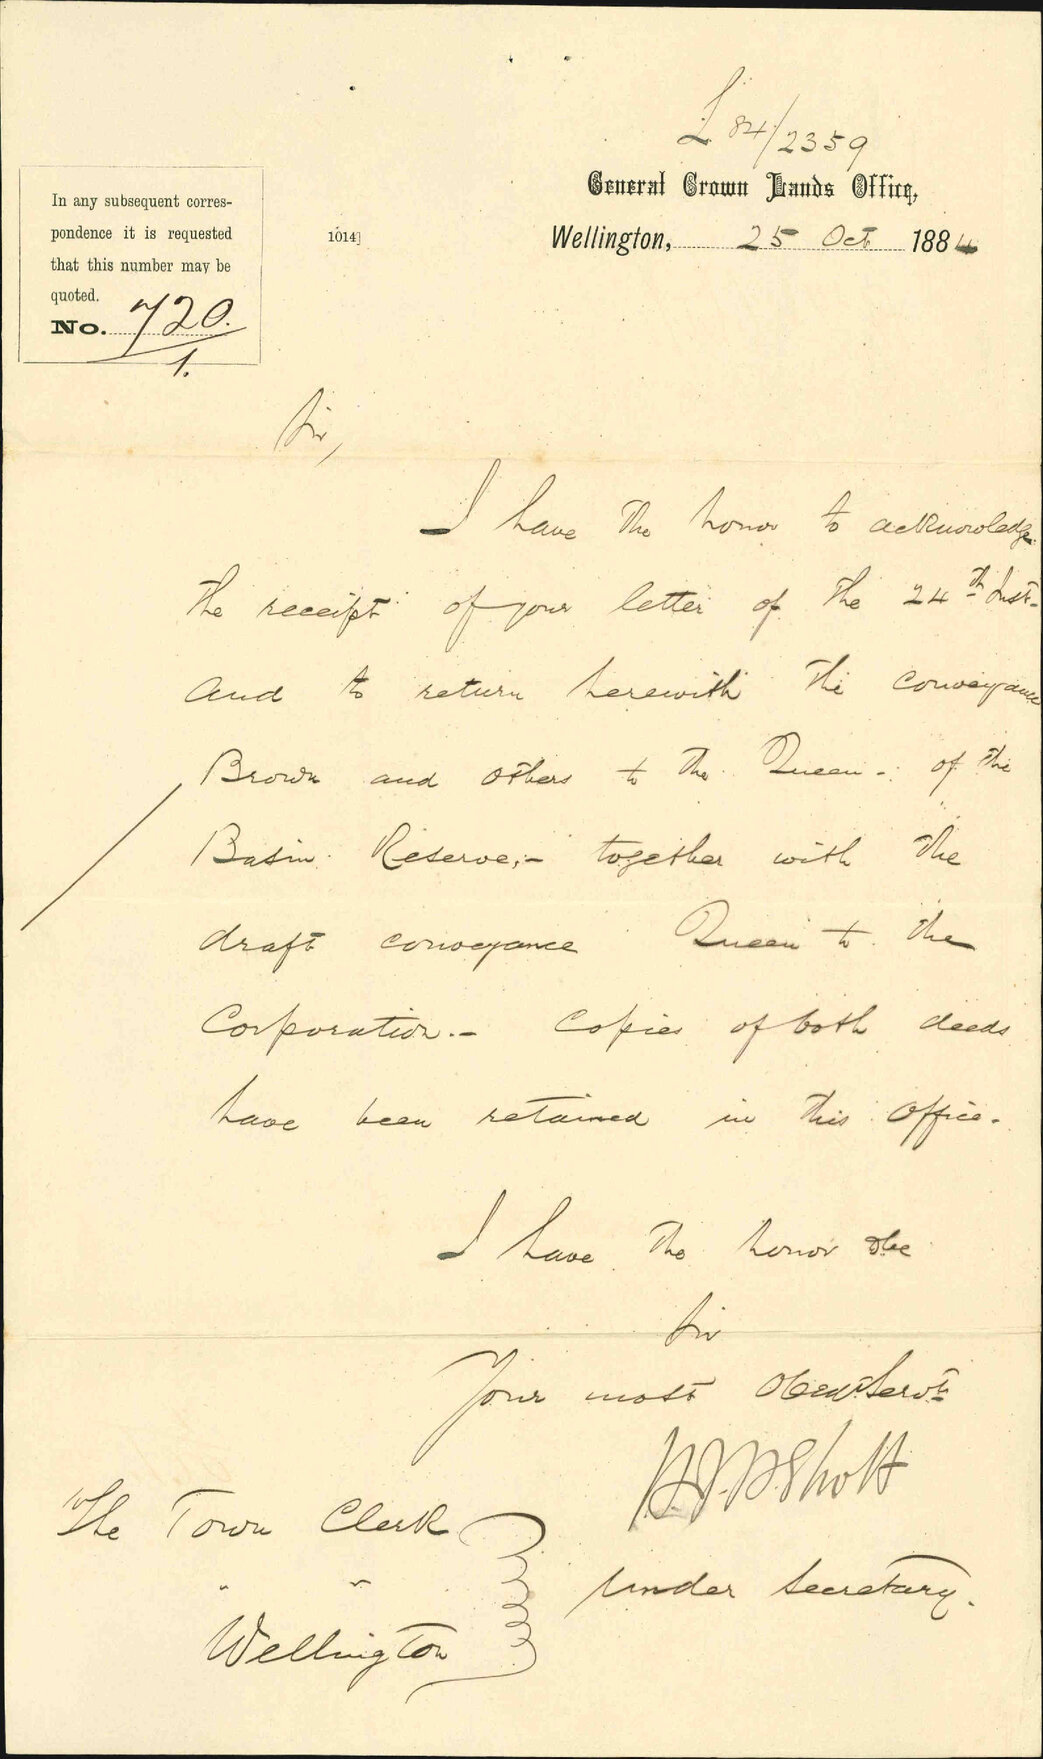 L 84/2359
General Crown Lands Office,
Wellington, 25 Oct 1884
In any subsequent corres-
pondence it is requested
that this number may be
quoted.
No. 720.
1.
1014]
Sir,
I have the honor to acknowledge
the receipt of your letter of the 24th Inst-
and to return herewith the conveyance
Brown and others to the Queen -: of the
Basin Reserve,- together with the
draft conveyance Queen to the
Corporation.- Copies of both deeds
have been retained in this Office.
I have the honor to be
Sir
Your most Obedt Servt
under Secretary.
The Town Clerk
" "
Wellington